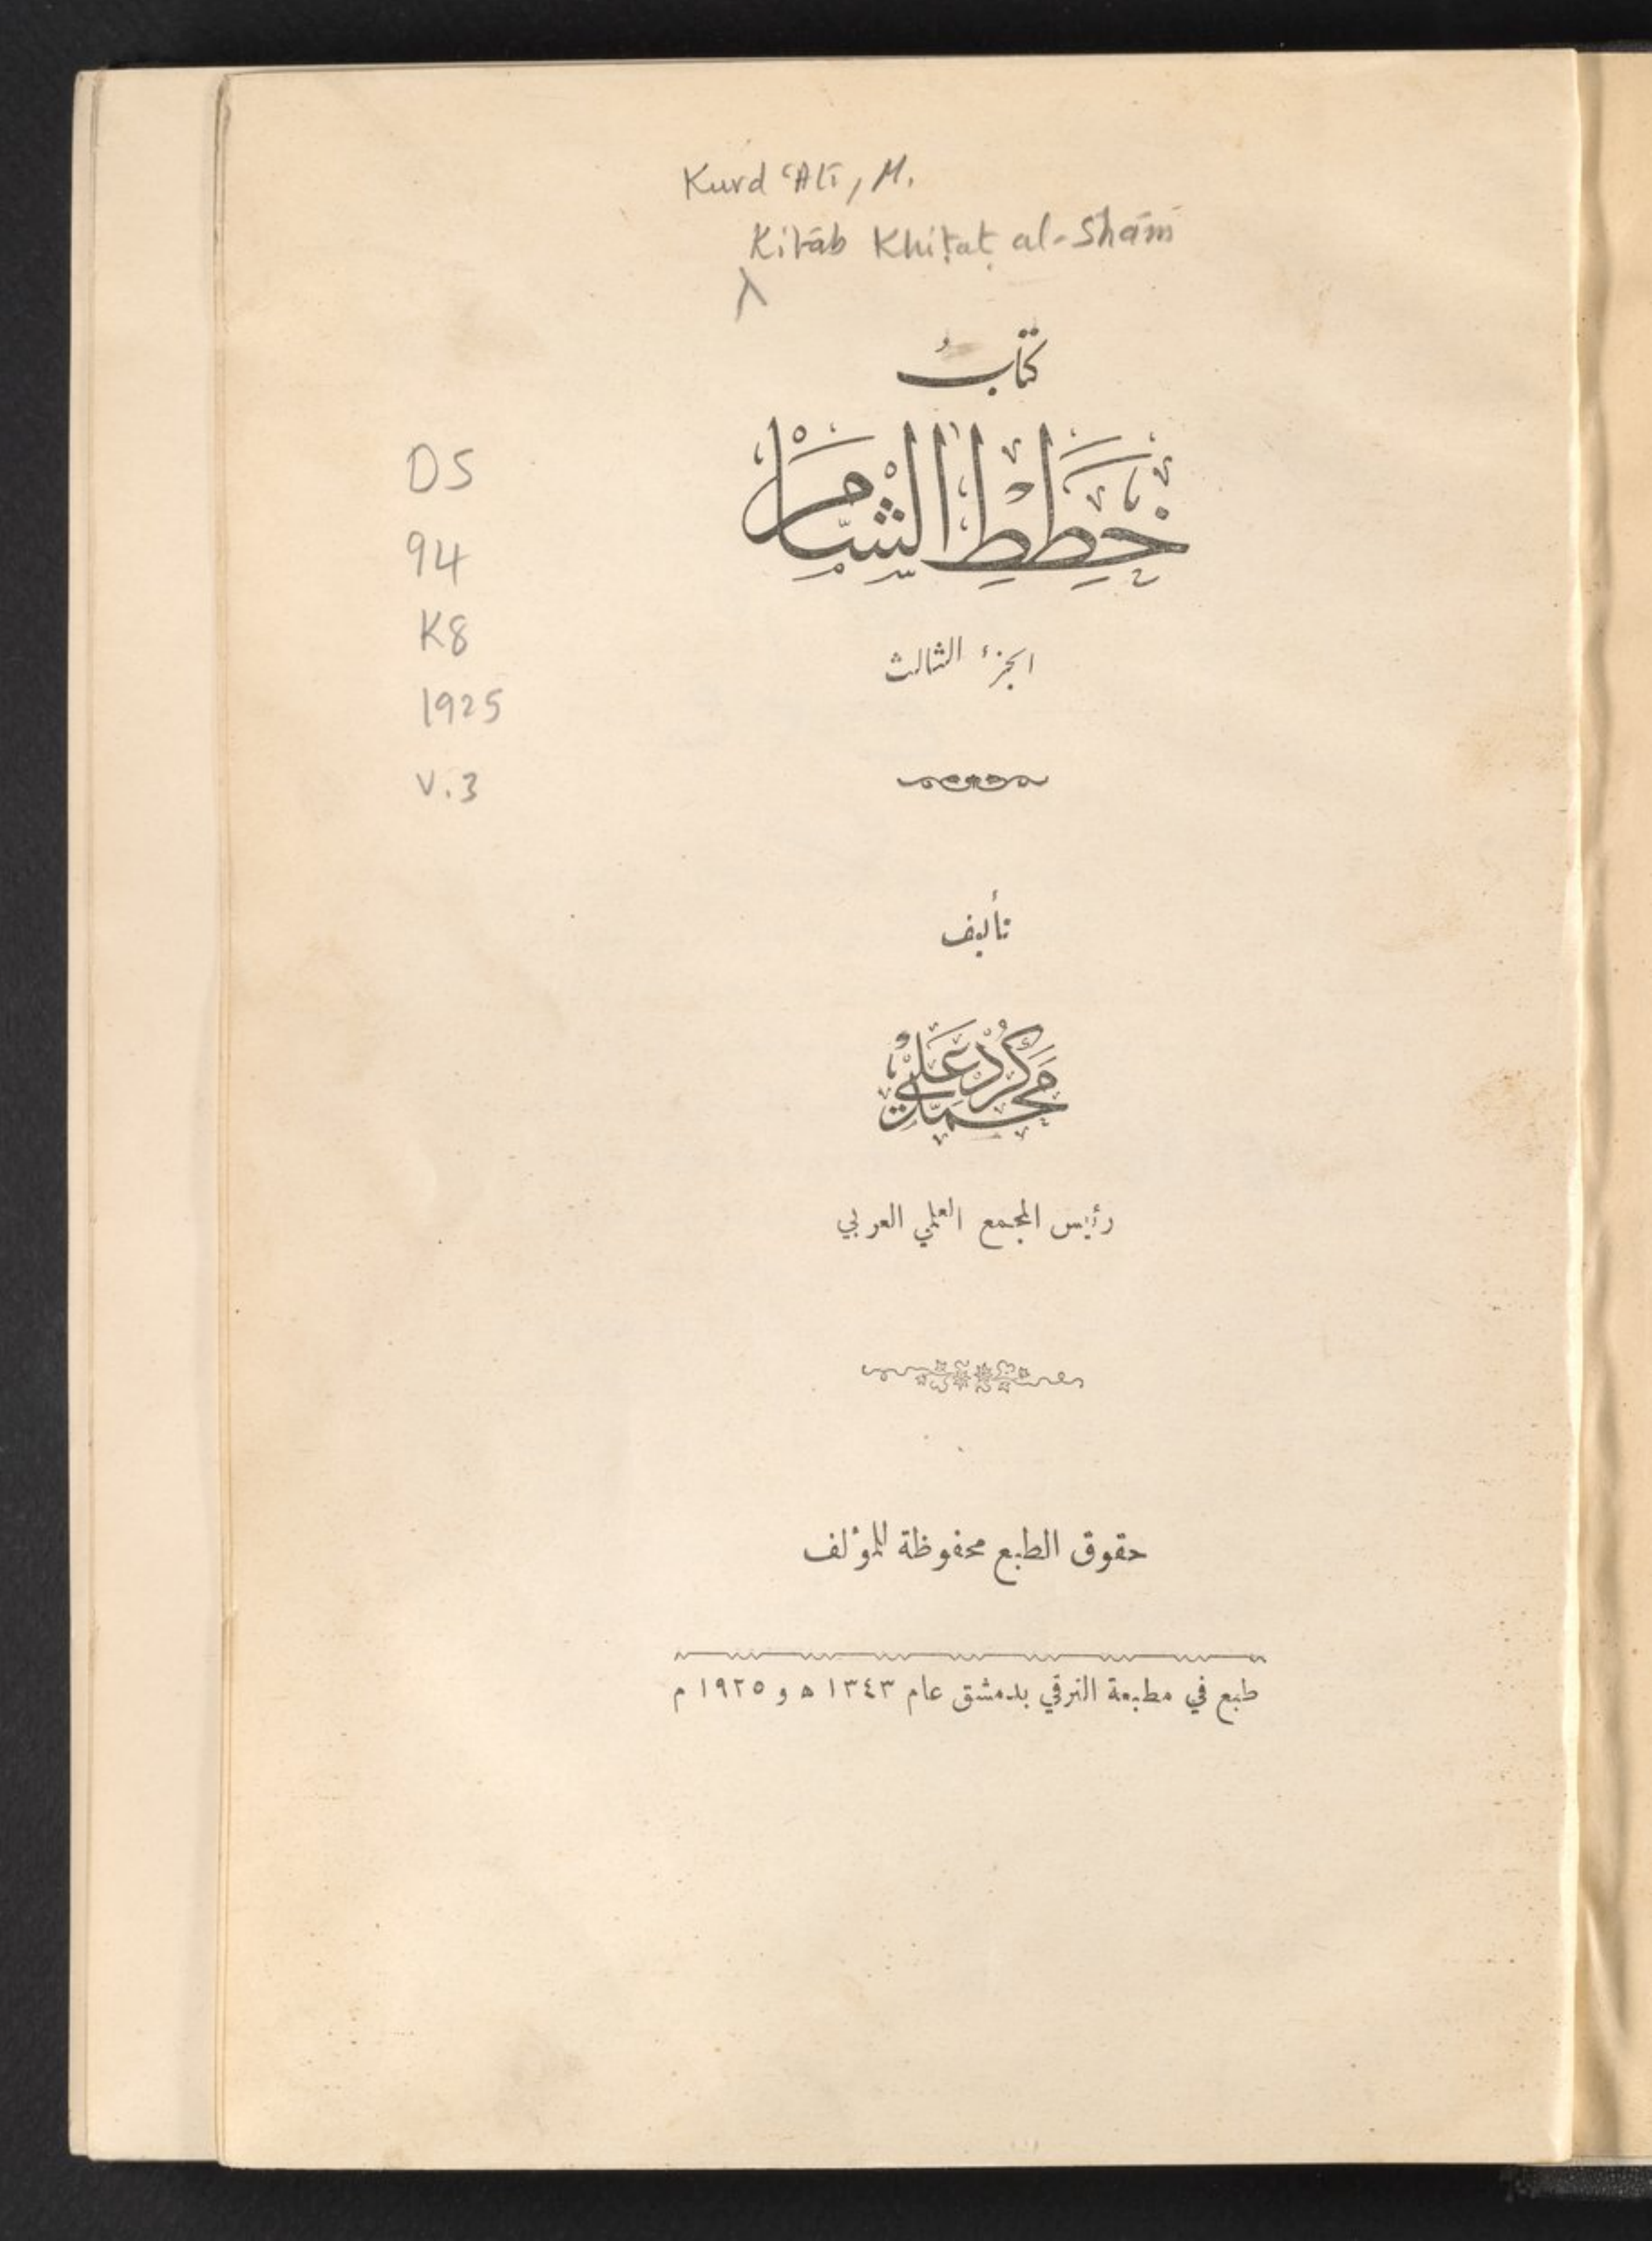 Kurd ʿAlī, M.
Kitāb Khiṭaṭ al-Shām
كتابُ
خِطَطِ الشَّام
الجزء الثالث
DS
94
K8
1925
v.3
تأليف
محمد كرد علي
رئيس المجمع العلمي العربي
حقوق الطبع محفوظة للمؤلف
طبع في مطبعة الترقي بدمشق عام ١٣٤٣ ه و ١٩٢٥ م